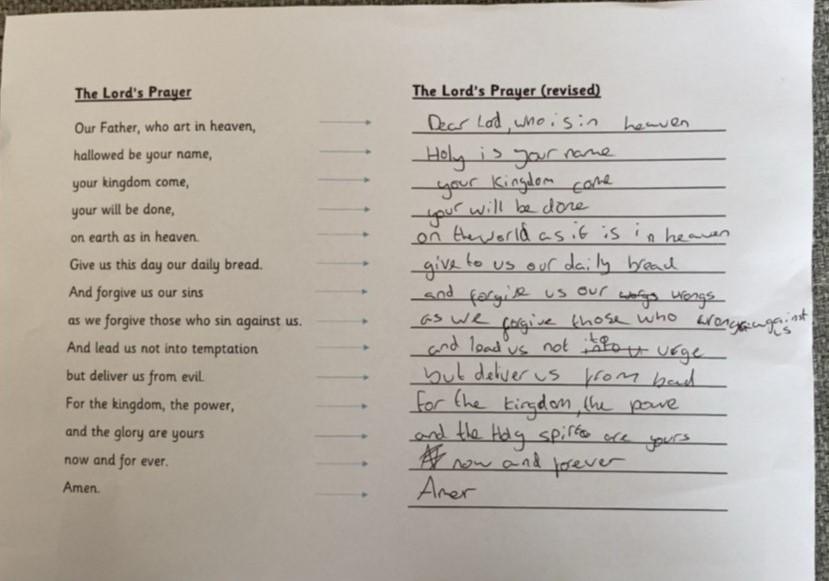 The Lord's Prayer
The Lord's Prayer (revised)
Our Father, who art in heaven,
Dear Lod, who is in heaven
hallowed be your name,
Holy is your name
your kingdom come,
your kingdom come
your will be done,
your will be done
on earth as in heaven.
on the world as it is in heaven
Give us this day our daily bread.
give to us our daily bread
And forgive us our sins
and forgive us our wrongs
as we forgive those who sin against us.
as we forgive those who wrong against us
And lead us not into temptation
and lead us not to urge
but deliver us from evil.
but deliver us from bad
For the kingdom, the power,
for the kingdom, the powe
and the glory are yours
and the Holy spirit are yours
now and for ever.
now and forever
Amen.
Amen